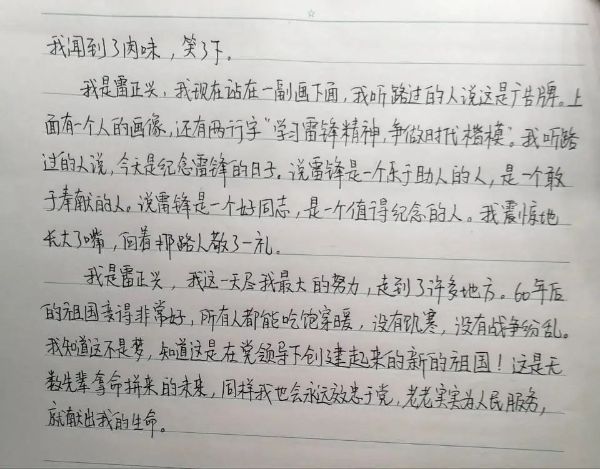 我闻到了肉味，笑了下。
我是雷正兴，我现在站在一副画下面，我听路过的人说这是广告牌。上
面有一个人的画像，还有两行字“学习雷锋精神，争做时代楷模”。我听路
过的人说，今天是纪念雷锋的日子。说雷锋是一个乐于助人的人，是一个敢
于奉献的人。说雷锋是一个好同志，是一个值得纪念的人。我震惊地
长大了嘴，向着那路人敬了一礼。
我是雷正兴，我这一天尽我最大的努力，走到了许多地方。60年后
的祖国变得非常好，所有人都能吃饱穿暖，没有饥寒，没有战争纷乱。
我知道这不是梦，知道这是在党领导下创建起来的新的祖国！这是无
数先辈拿命拼来的未来，同样我也会永远效忠于党，老老实实为人民服务，
就献出我的生命。